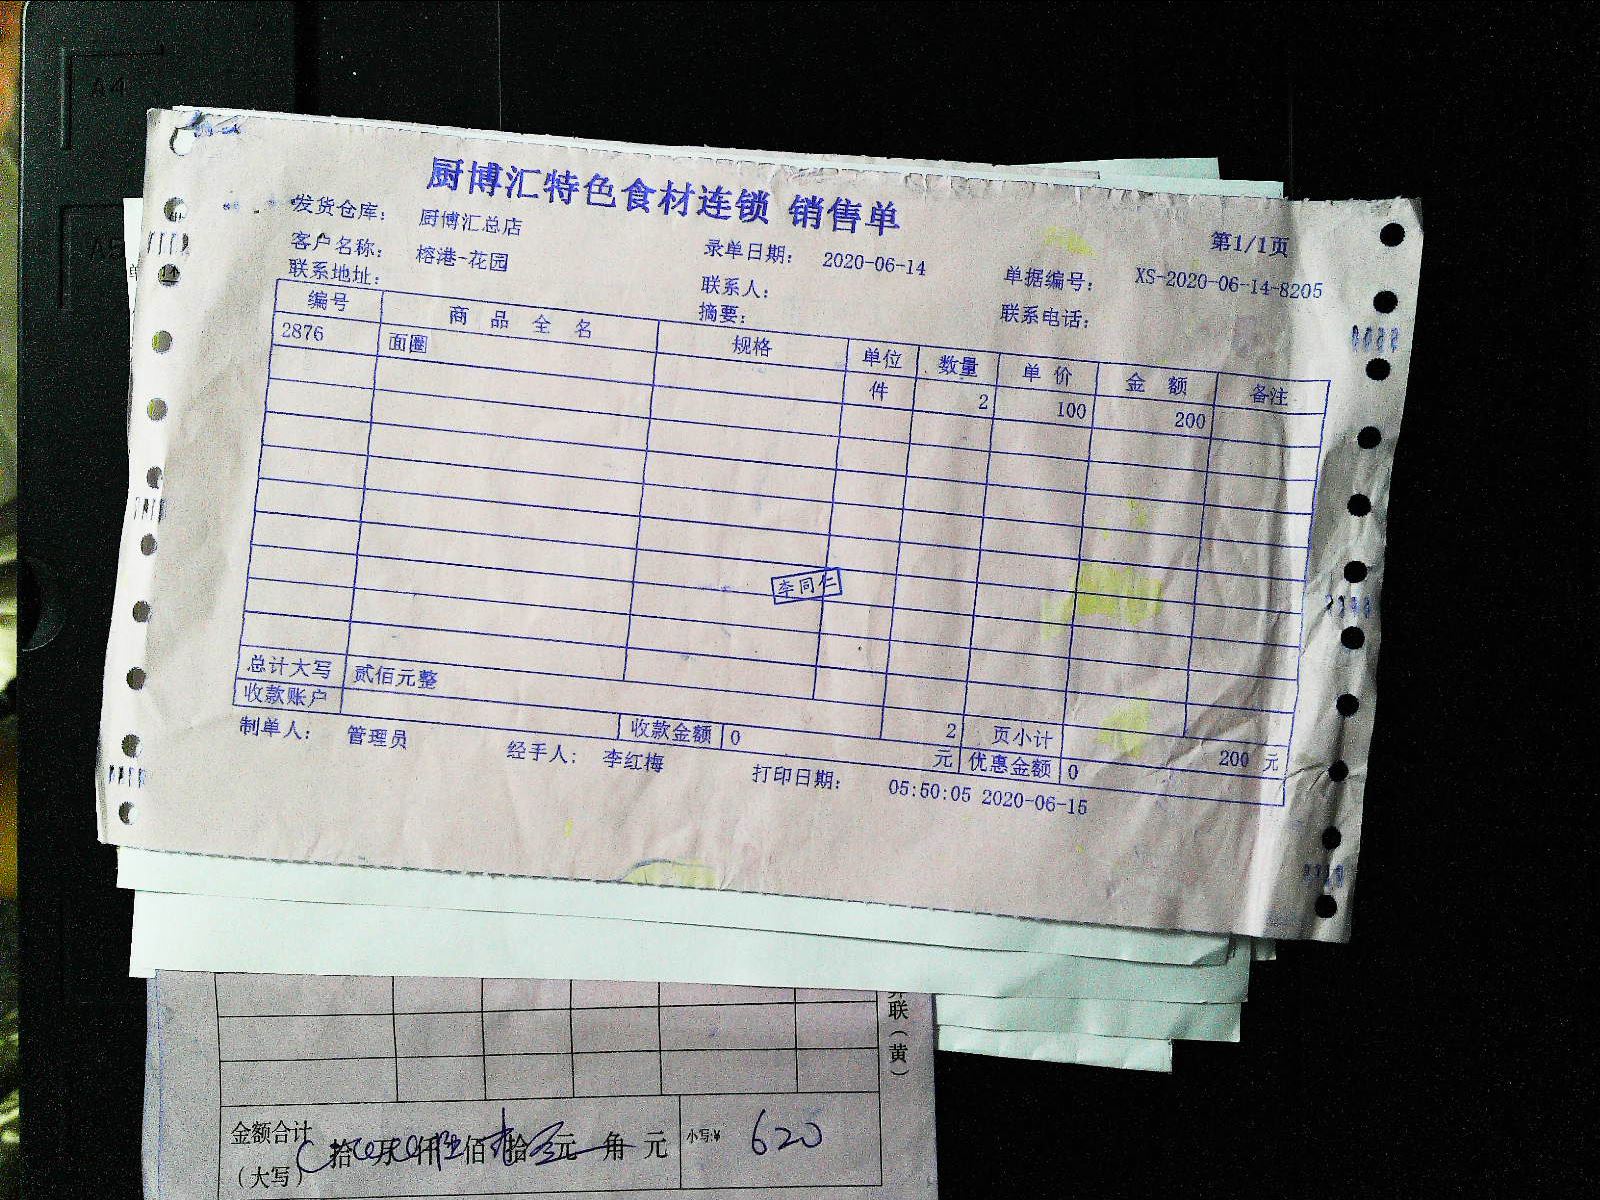 厨博汇特色食材连锁 销售单
第1/1页
发货仓库： 厨博汇总店
客户名称： 榕港-花园 录单日期： 2020-06-14 单据编号： XS-2020-06-14-8205
联系地址： 联系人： 联系电话：
摘要：
编号 商品全名 规格 单位 数量 单价 金额 备注
2876 面圈 件 2 100 200
李同仁
总计大写 贰佰元整 2 页小计 200 元
收款账户 收款金额 0 元 优惠金额 0
制单人： 管理员 经手人： 李红梅 打印日期： 05:50:05 2020-06-15
联（黄）
金额合计
（大写） 拾 万 仟 佰 拾 元 角 元 小写:¥ 620
A4
A5